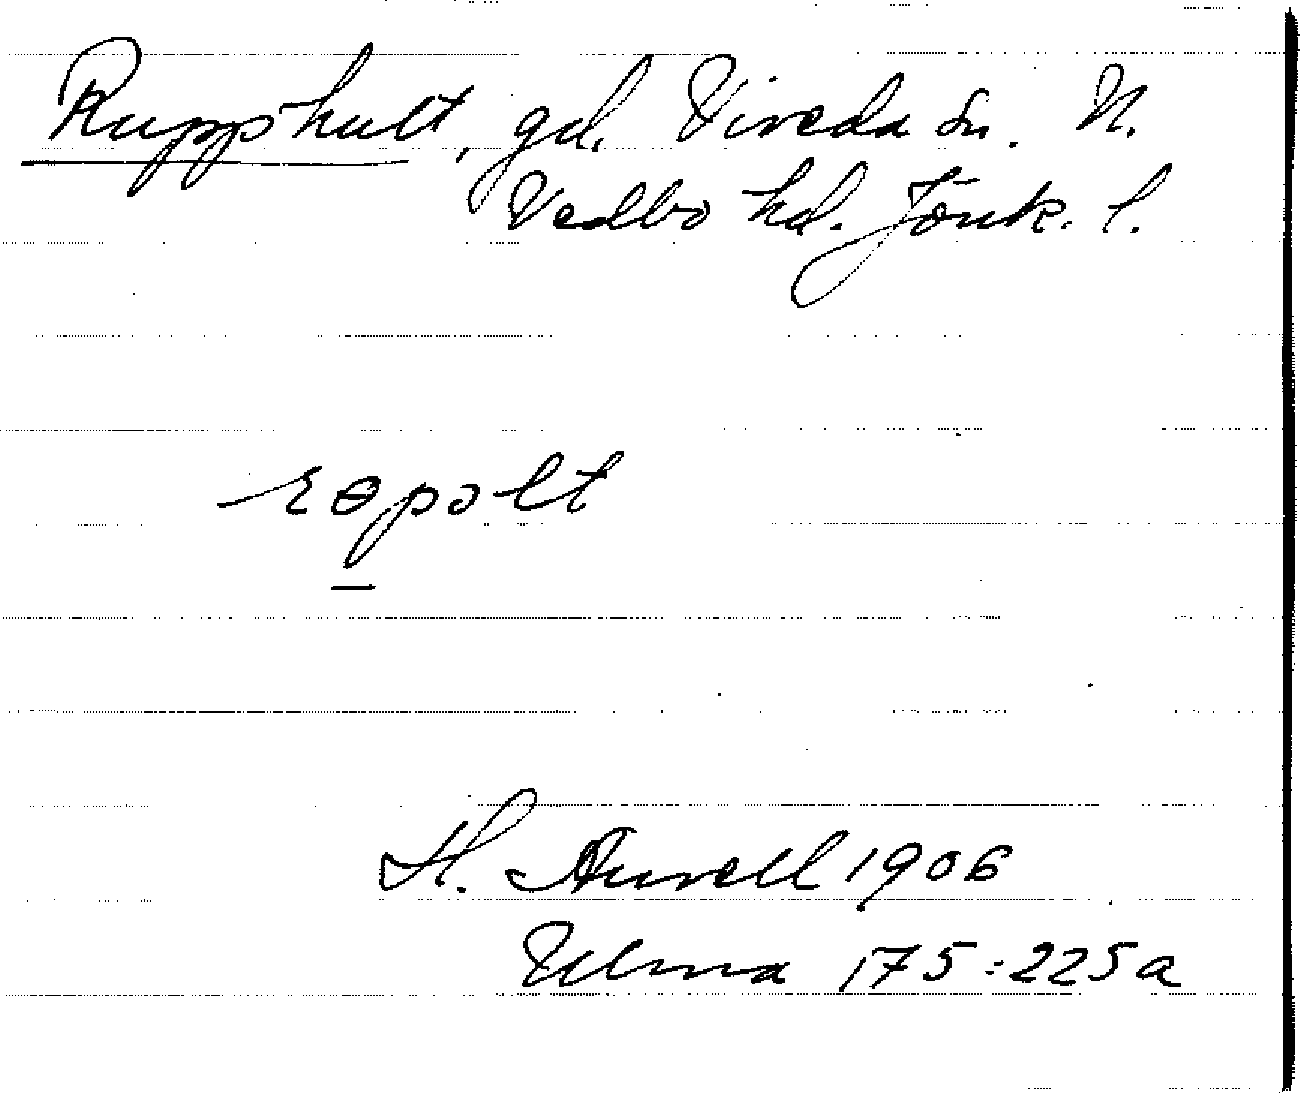 Ruppshult, gd, Vireda sn. N.
Vedbo hd. Jönk. l.
rɵpɔlt
H. Aurell 1906
Ulma 175:225a